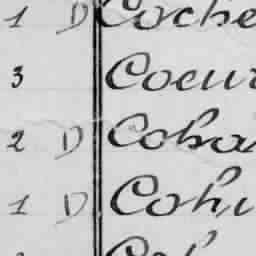 1 D Coche
3 Coeur
2 D Coba
1 D Cohi